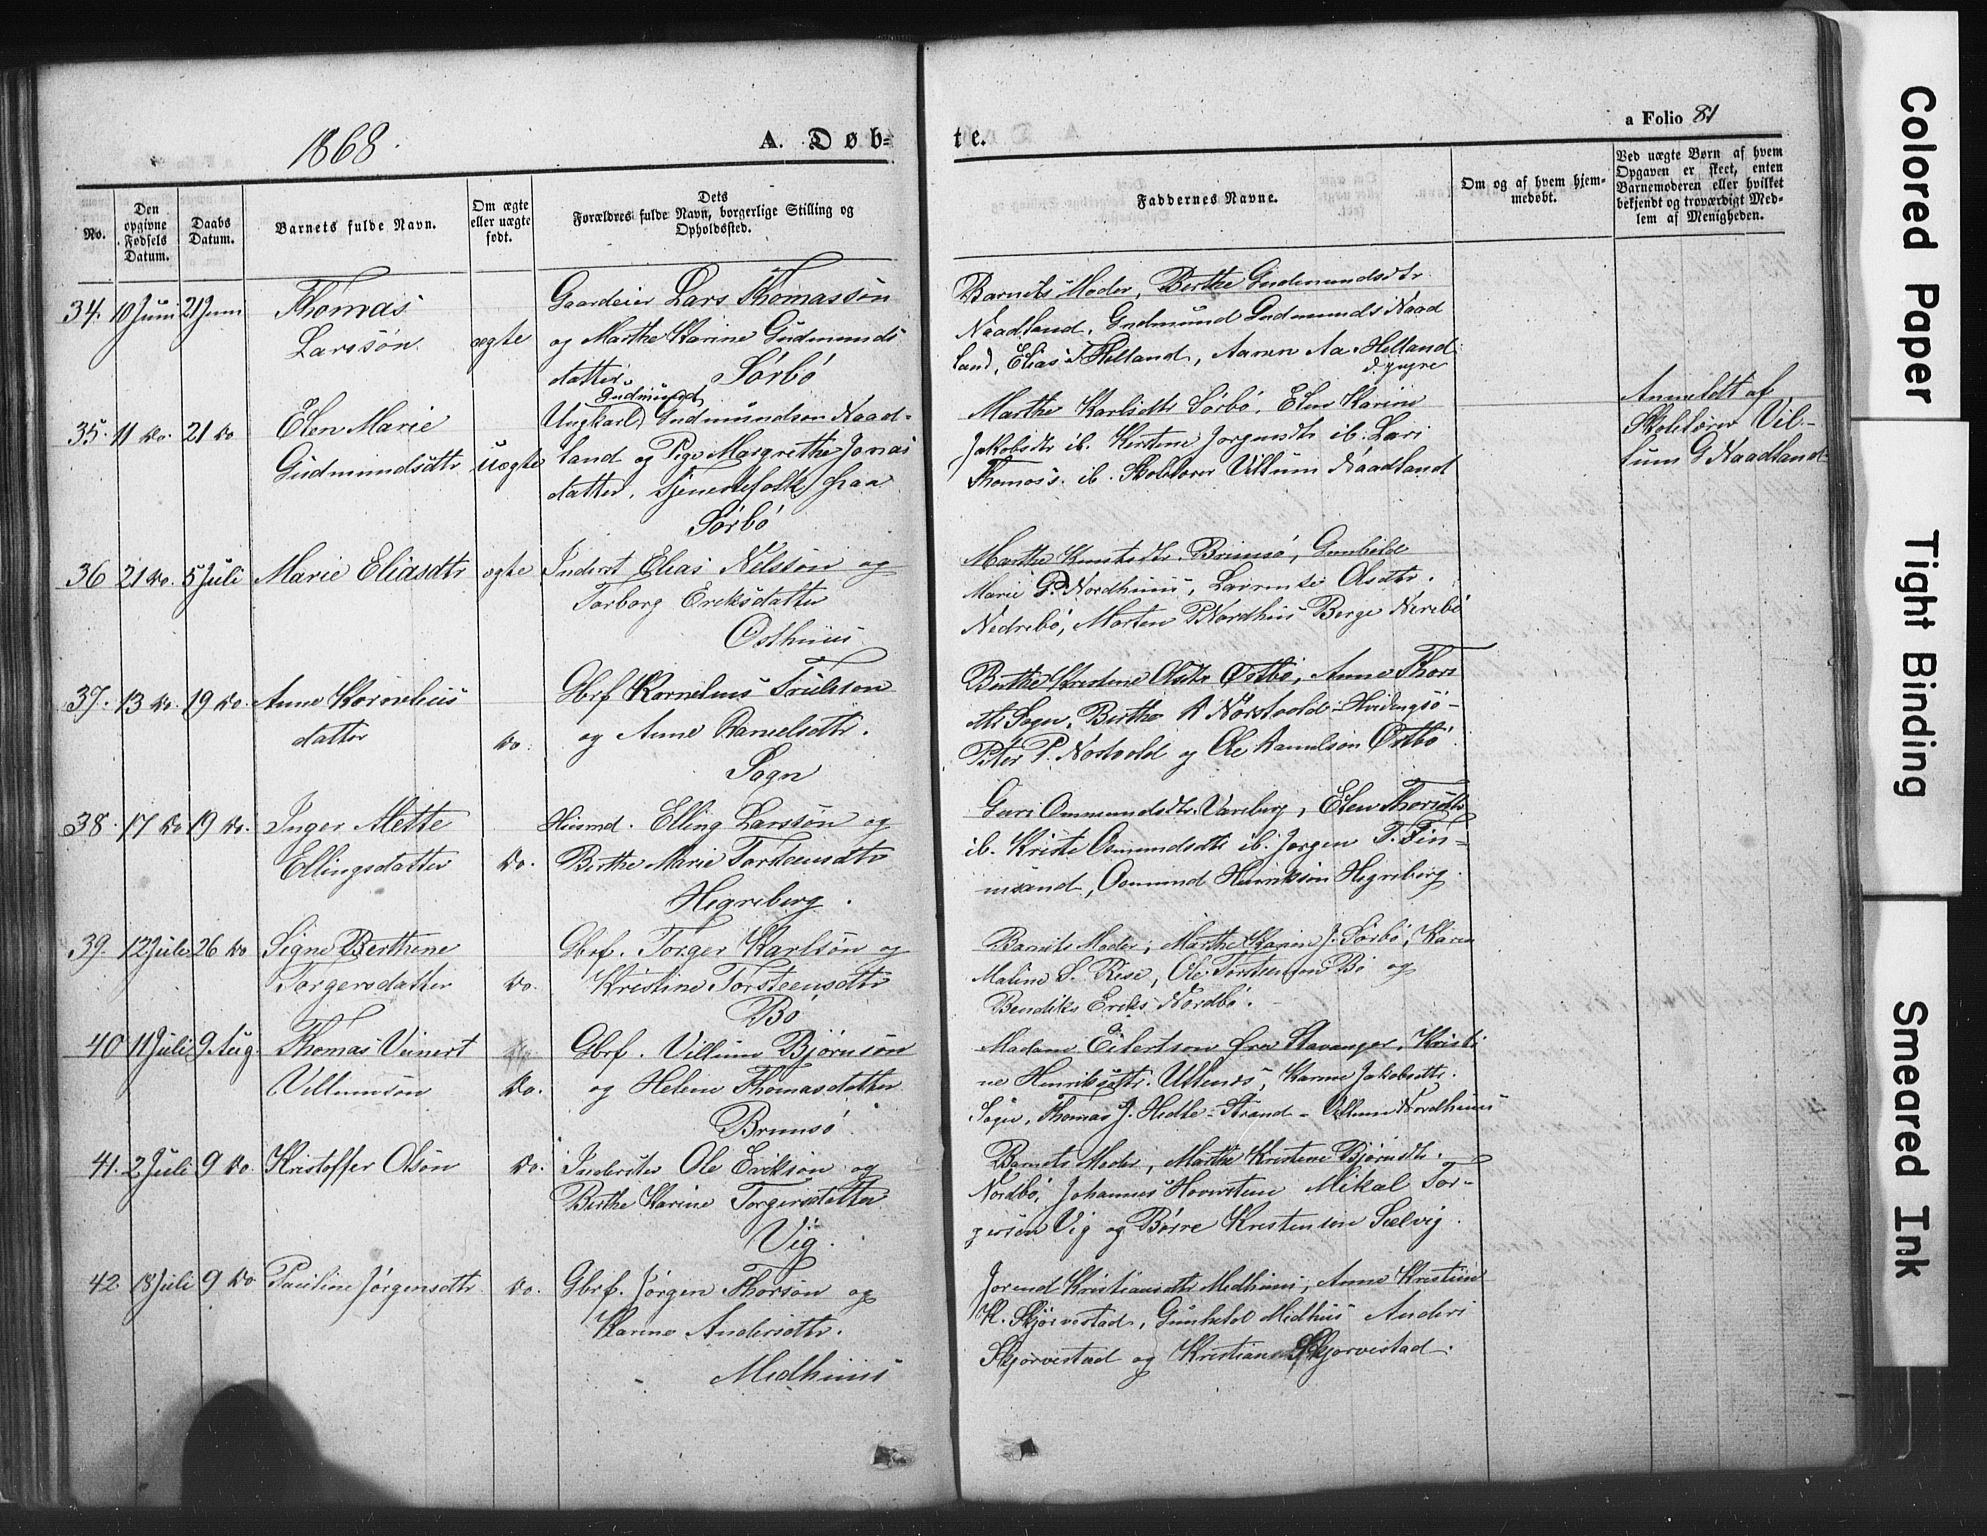 1868.
A. Døb=
te.
a Folio 81
No.
Den opgivne Fødsels Datum.
Daabs Datum.
Barnets fulde Navn.
Om ægte eller uægte født.
Dets Forældres fulde Navn, borgerlige Stilling og Opholdssted.
Faddernes Navne.
Om og af hvem hjemmedøbt.
Ved uægte Børn af hvem Opgaven er skeet, enten Barnemoderen eller hvilket bekjendt og troværdigt Medlem af Menigheden.
34. 10 Juni 21 Juni Thomas
Larssøn. ægte
Gaardeier Lars Thomassøn
og Marthe Karine Gudmunds
datter. Sørbø
Barnets Moder, Berthe Gudmundsdtr
Naadland, Gudmund Gudmunds Naad
land, Elias T Helland, Aanen Aa. Helland
d. yngre
35. 11 do. 21 do Elen Marie
Gudmundsdtr uægte
Gudmund
Ungkarl Gudmundson Naad=
land og Pige Margrethe Jonas
datter, tjenestefolk paa
Sørbø
Marthe Karlsdtr Sørbø, Elen Karine
Jakobsdtr ib. Kirstine Jørgensdtr ib. Lars
Thomas's. ib. Skolelærer Villum Naadland
Anmeldt af
Skolelærer Vil-
lum G Naadland
36 21 do. 5 Juli Marie Eliasdtr ægte
Inderst Elias Nilssøn og
Torborg Eriksdatter
Østhuus
Marthe Knutsdtr. Brimsø, Gunhild
Marie P. Nordhuus, Lavrense Olsdtr.
Nedrebø, Morten P Nordhus Berge Nerebø
37. 13 do. 19 do. Anne Kornelius
datter do.
Gbrf Kornelius Trulsson
og Anne Danielsdtr.
Sogn
Berthe Kristene Olsdtr Østbø, Anne Thors
dtr Sogn, Berthe R Norstvold - Hvidingsø -
Peter P. Nortvold og Ole Danielson Østbø
38. 17 do 19 do. Inger Mette
Ellingsdatter do.
Huusmd. Elling Larssøn og
Birthe Marie Torsteensdtr
Hegreberg.
Guri Ommundsdtr. Vareberg, Elen Thorsdtr
ib. Kriste Osmundsdtr ib. Jørgen T. Fin-
nesand, Osmund Henriksøn Hegreberg.
39. 12 Juli 26 do Signe Berthine
Torgersdatter do.
Gbrf. Torger Karlsøn og
Kristine Torsteensdtr
Bø
Barnets Moder, Marthe Karen J. Sørbø, Karen
Maline S. Rise, Ole Torsteenson Bø og
Bendiks Eriks Nordbø.
40 11 Juli 9 Aug. Thomas Veinert
Villumsøn do.
Gbrf. Villum Bjørnsøn
og Helene Thomasdatter
Brimsø
Madam Eilertson fra Stavanger, Kristi
ne Henriksdtr. Utlenes, Karine Jakobsdtr.
Sogn, Thomas J. Hidle - Strand - Villum Nordhuus
41. 2 Juli 9 do. Kristoffer Olsøn do.
Inderster Ole Eriksøn og
Birthe Karine Torgersdatter
Vig.
Barnets Moder, Marthe Kristine Bjørnsdtr.
Nordbø, Johannes Hovrsteen Mikal Tor-
gersen Vig og Børre Kristensen Selvig.
42. 18 Juli 9 do Pauline Jørgensdtr. do.
Gbrf. Jørgen Thorsøn og
Karine Andersdtr.
Midhuus
Jorend Kristiansdtr Midhuus, Anne Kristine
K. Skjørvestad, Gunhild Midhuus Anders
Skjørvestad og Kristian Skjørvestad.
Colored Paper
Tight Binding
Smeared Ink